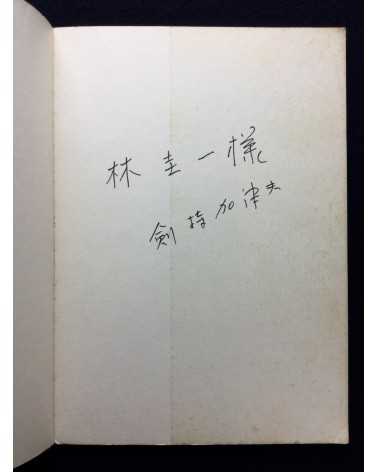 林圭一様
剣持加津夫